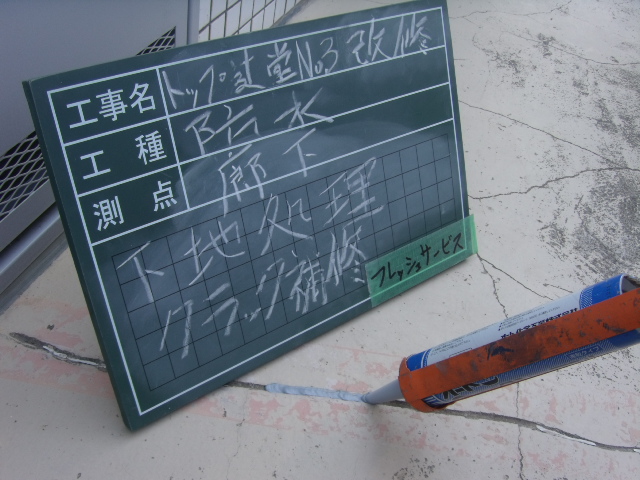 工事名 トップ辻堂No3改修
工種 防水
測点 廊下
下地処理
クラック補修
フレッシュサービス